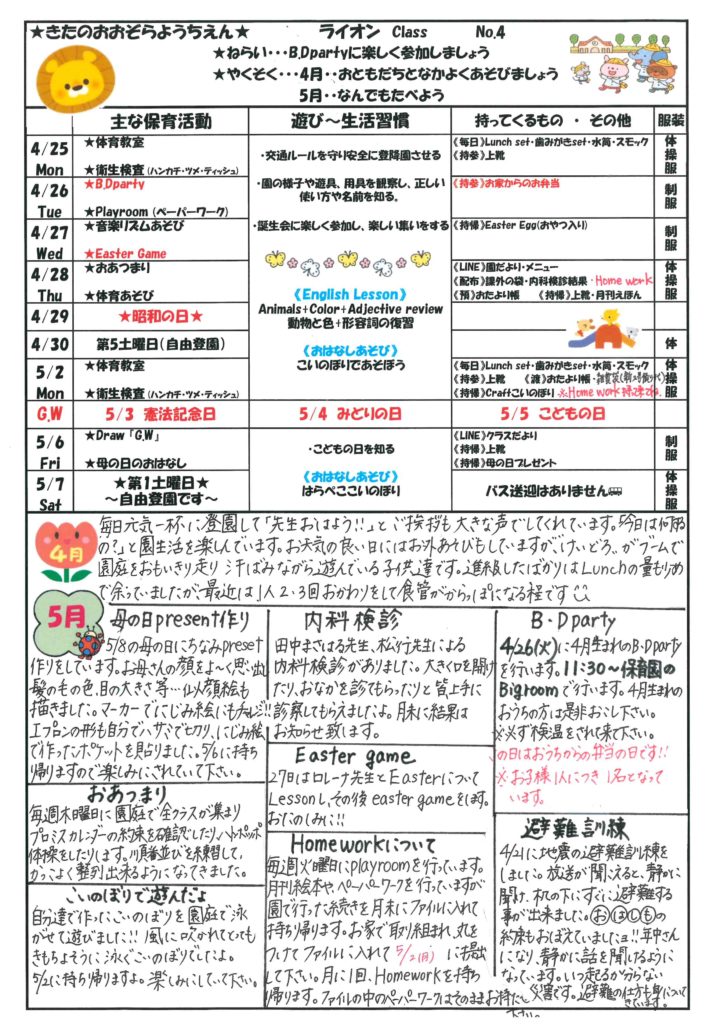 ★きたのおおぞらようちえん★ ライオン Class No.4
★ねらい・・・B.Dpartyに楽しく参加しましょう
★やくそく・・・4月・・おともだちとなかよくあそびましょう
5月・・なんでもたべよう
主な保育活動 遊び～生活習慣 持ってくるもの ・ その他 服装
4/25 Mon
★体育教室
★衛生検査（ハンカチ・ツメ・ティッシュ）
・交通ルールを守り安全に登降園させる
《毎日》Lunch set・歯みがきset・水筒・スモック
《持参》上靴
体操服
4/26 Tue
★B.Dparty
★Playroom（ペーパーワーク）
・園の様子や遊具、用具を観察し、正しい
使い方や名前を知る。
《持参》お家からのお弁当
制服
4/27 Wed
★音楽リズムあそび
★Easter Game
・誕生会に楽しく参加し、楽しい集いをする
《持帰》Easter Egg(おやつ入り)
制服
4/28 Thu
★おあつまり
★体育あそび
《English Lesson》
Animals+Color+Adjective review
動物と色+形容詞の復習
《LINE》園だより・メニュー
《配布》課外の袋・内科検診結果・Home work
《預》おたより帳 《持帰》上靴・月刊えほん
体操服
4/29 ★昭和の日★
4/30 第5土曜日（自由登園）
体
《おはなしあそび》
こいのぼりであそぼう
5/2 Mon
★体育教室
★衛生検査（ハンカチ・ツメ・ティッシュ）
《毎日》Lunch set・歯みがきset・水筒・スモック
《持参》上靴 《渡》おたより帳・
《持帰》Craftこいのぼり ※Home work
体操服
G.W 5/3 憲法記念日 5/4 みどりの日 5/5 こどもの日
5/6 Fri
★Draw「G.W」
★母の日のおはなし
・こどもの日を知る
《LINE》クラスだより
《持帰》上靴
《持帰》母の日プレゼント
制服
5/7 Sat
★第1土曜日★
～自由登園です～
《おはなしあそび》
はらぺここいのぼり
バス送迎はありません
体操服
4月
毎日元気一杯に登園して「先生おはよう!!」とご挨拶も大きな声でしてくれています。「今日は何するの
の?」と園生活を楽しんでいます。お天気の良い日にはお外あそびもしていますが、けいどろ、がブームで
園庭をおもいきり走り 汗ばみながら遊んでいる子供達です。進級したばかりはLunchの量も少しもりめ
で余っていましたが、最近は1人2・3回おかわりをして食管がからっぽになる程です
5月
母の日present作り
5/8の母の日にちなみpreset
作りをしています。お母さんの顔をよ～く思い出し
髪の毛の色、目の大きさ等…似顔絵も
描きました。マーカーでにじみ絵にもチャレンジ!!
エプロンの形も自分でハサミでcutり、にじみ絵
で作ったポケットを貼りました。5/6に持ち
帰りますので楽しみにされていて下さい。
おあつまり
毎週木曜日に園庭で全クラスが集まり
プロミスカレンダーの約束を確認したり、ハトポッポ
体操をしたりします。順番並びを練習して、
かっこよく整列出来るようになってきました。
こいのぼりで遊んだよ
自分達で作ったこいのぼりを園庭で泳
がせて遊びました!! 風に吹かれてとっても
きもちよそうに泳ぐこいのぼりでしたよ。
5/2に持ち帰りますよ。楽しみにしていて下さい。
内科検診
田中まさはる先生、松行先生による
内科検診がありました。大きく口を開け
たり、おなかを診てもらったりと皆上手に
診察してもらえましたよ。月末に結果は
お知らせ致します。
Easter game
27日はロレーナ先生とEasterについて
Lessonし、その後easter gameをします。
おたのしみに!!
Homeworkについて
毎週火曜日にplayroomを行っています。
月刊絵本やペーパーワークを行っていますが
園で行った続きを月末にファイルに入れて
持ち帰ります。お家で取り組まれ、丸を
つけてファイルに入れて5/2(月)に提出
して下さい。月に1回、Homeworkを持ち
帰ります。ファイルの中のペーパーワークはそのままお持たし
下さい。
B・Dparty
4/26(火)に4月生まれのB・Dparty
を行います。11:30～保育園の
Bigroomで行います。4月生まれの
おうちの方は是非おこし下さい。
※必ず検温をされて来て下さい。
の日はおうちからの弁当の日です!!
※お子様1人につき1名となって
います。
避難訓練
4/21に地震の避難訓練を
しました。放送が聞こえると、静かに
聞け、机の下にすぐに避難する
事が出来ました。おはしもの
約束もおぼえていましたョ!!年中さん
になり、静かに話を聞けるように
なっています。いつ起こるか分らない
災害です。避難の仕方も身につけて
いきます。